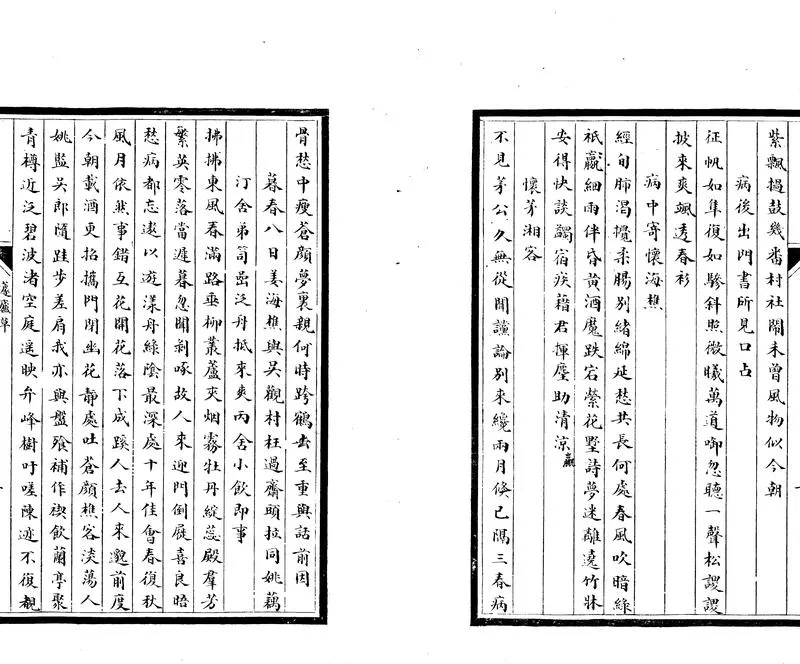 紫飄撾鼓幾番村社鬧未曾風物似今朝
病後出門書所見口占
征帆如隼復如驂斜照微曦萬道啣忽聽一聲松謖謖
披來爽颯透春衫
病中寄懷海樵
經旬肺渴攪柔腸別緒綿延愁共長何處春風吹暗綠
祇贏細雨伴昏黄酒魔跌宕縈花墅詩夢迷離遶竹牀
安得快談蠲宿疾藉君揮麈助清涼
贏
懷茅湘客
不見茅公久無從聞讜論別來纔兩月倏已隔三春病
骨愁中瘦蒼顏夢裏親何時跨鶴去至重與話前因
暮春八日姜海樵與吳觀村枉過齋頭拉同姚藕
汀舍弟筍嵒泛舟抵來爽丙舍小飲即事
拂拂東風春滿路垂柳叢蘆夾烟霧牡丹綻蕊殿羣芳
繁英零落當遲暮忽聞剝啄故人來迎門倒屐喜良晤
愁病都忘遂以遊漾舟綠陰最深處十年佳會春復秋
風月依然事錯互花開花落下成蹊人去人來邈前度
今朝載酒更招擕門閉幽花靜處吐蒼顏樵客淡蕩人
姚監吳郎隨跬步差肩我亦與盤飱補作禊飲蘭亭聚
蘧廬草
青樽近泛碧波渚空庭遥映弁峰樹吁嗟陳迹不復覩